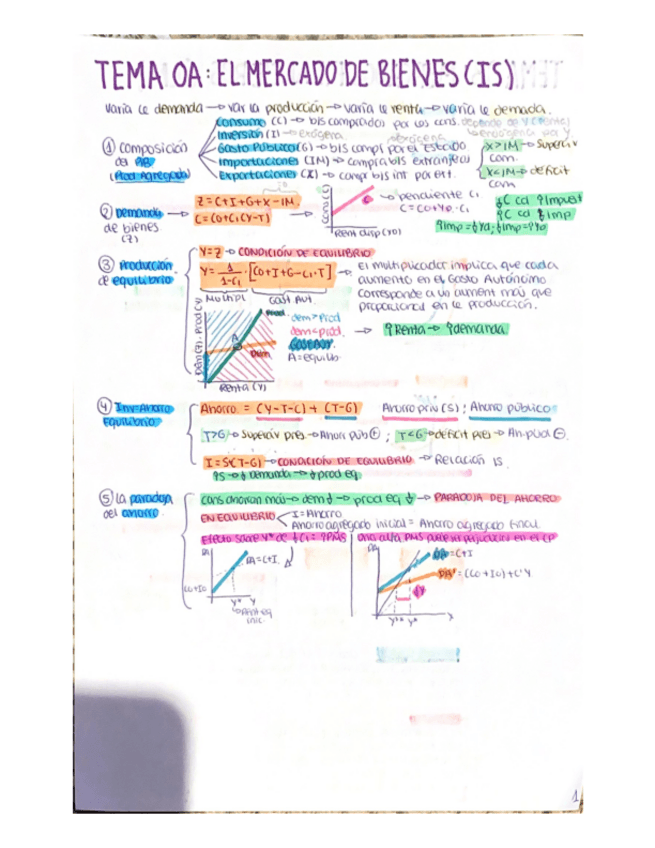 TEMA 0A: EL MERCADO DE BIENES (IS)
Varia la demanda → var la producción → varia la renta → varia la demada.
① Composición del PIB (Prod Agregada)
Consumo (C) → b/s comprados por los cons. depende de Y (renta)
Inversión (I) → exógena
Gasto Público (G) → b/s comps por el Estado
Importaciones (IM) → compra b/s extranjeros
Exportaciones (X) → compr b/s int por ext.
exógena
endógena por Y
X>IM → Superáv com.
X<IM → déficit com
② Demanda de bienes. (Z)
Z = C+I+G+X-IM.
C = C0+C1(Y-T)
Cons (C)
Rent disp (YD)
pendiente C1
C = C0+YD·C1
↓C cd ↑Impuest
↑C cd ↓Imp
↑Imp=↓Yd; ↓Imp=↑Yd
③ Producción de equilibrio
Y=Z → CONDICIÓN DE EQUILIBRIO
Y = 1/1-C1 · [C0+I+G-C1·T]
Multipl
Gast Aut.
El multiplicador implica que cada
aumento en el Gasto Autónomo
corresponde a un aument más que
proporcional en la producción.
Dem (Z), Prod (Y)
Prod.
A
Dem
Renta (Y)
dem>Prod
dem<prod.
A=equilib.
↑Renta → ↑demanda
④ Inv=Ahorro Equilibrio
Ahorro = (Y-T-C) + (T-G)
Ahorro priv (S); Ahorro público
T>G → Superáv pres → Ahorr púb ⊕; T<G → déficit pres → Ah-púb ⊖.
I = S+(T-G) → CONDICIÓN DE EQUILIBRIO → Relación IS.
↑S → ↓ demanda → ↓ prod eq
⑤ La paradoja del ahorro
Cons ahorran más → dem ↓ → prod eq ↓ → PARADOJA DEL AHORRO
EN EQUILIBRIO
I=Ahorro
Ahorro agregado inicial = Ahorro agregado final.
Efecto sobre Y* de ↓C1 = ↑PMS
Una alta PMS puede ser perjudicial en el CP
DA
DA=C+I.
C0+I0
Y*
Y
DA
DA=C+I
DA'=(C0+I0)+C'Y.
Y*' Y*
1